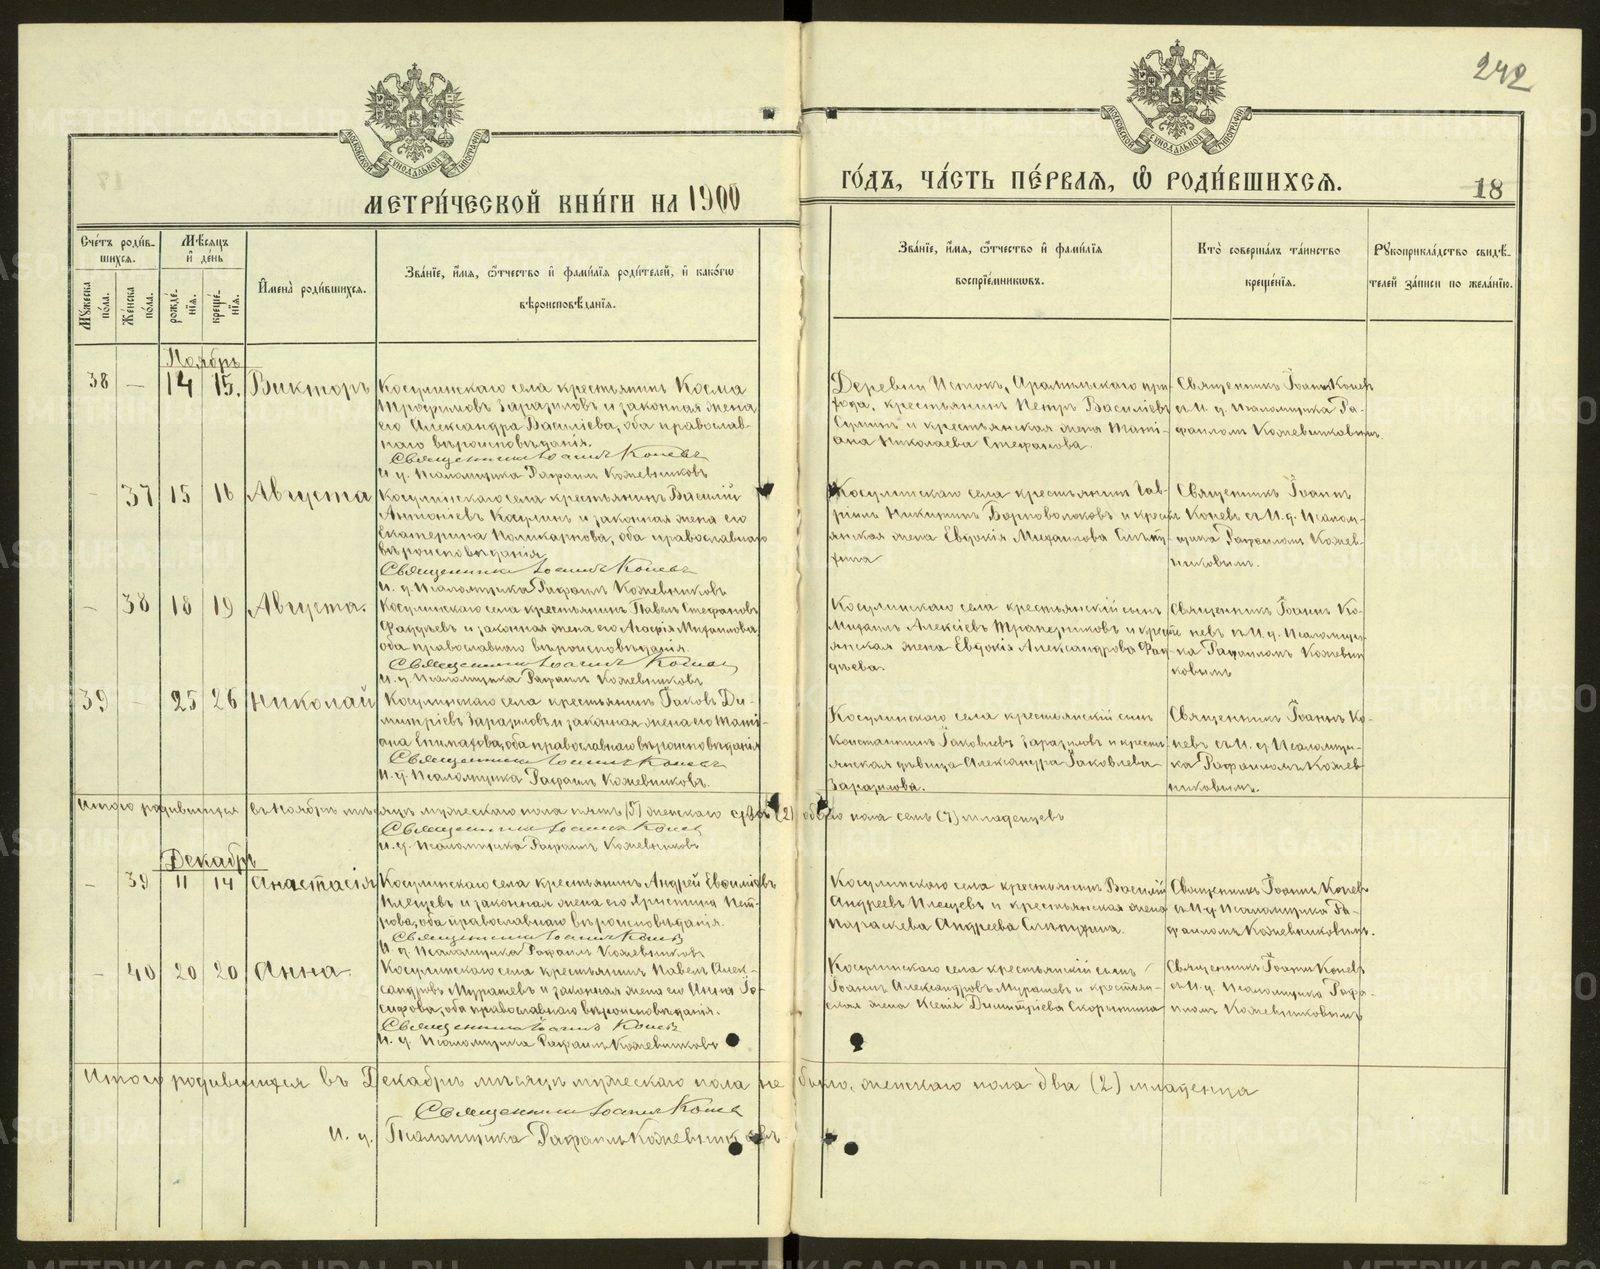 242
МЕТРИ́ЧЕСКОЙ КНИ́ГИ НА 1900
ГО́ДЪ, ЧА́СТЬ ПЕ́РВАЯ, Ѿ РОДИ́ВШИХСЯ.
18
Сче́тъ роди́в-
шихся.
Мѣ́сяцъ
и҆ де́нь
Мꙋ́жеска по́ла.
Же́нска по́ла.
рожде́-нїѧ.
креще́-нїѧ.
И҆мена̀ роди́вшихся.
Зва́нїе, и҆́мѧ, ѻ҆́тчество и҆ фами́лїѧ роди́телей, и҆ како́гѡ
вѣроисповѣ́данїѧ.
Зва́нїе, и҆́мѧ, ѻ҆́тчество и҆ фами́лїѧ
воспрїе́мникѡвъ.
Кто̀ соверша́лъ та́инство
креще́нїѧ.
Рꙋкоприкла́дство свидѣ́-
телей за́писи по жела́нїю.
Ноябрь
38 — 14 15. Викторъ
Косулинскаго села крестьянинъ Косма
Трофимовъ Заразиловъ и законная жена
его Александра Василіева, оба православ-
наго вѣроисповѣданія.
Священникъ Іоаннъ Коневъ
И. д. Псаломщика Рафаилъ Кожевниковъ
Деревни Истокъ, Арамильскаго при-
хода, крестьянинъ Петръ Василіевъ
и крестьянская жена Тати-
ана Николаева Стефанова.
Священникъ Іоаннъ Конев
съ И. д. псаломщика Ра-
фаиломъ Кожевниковымъ.
- 37 15 16 Августа
Косулинскаго села крестьянинъ Василій
Антоніевъ Косулинъ и законная жена его
Екатерина Поликарпова, оба православнаго
вѣроисповѣданія
Священникъ Іоаннъ Коневъ
И. д. Псаломщика Рафаилъ Кожевниковъ
Косулинскаго села крестьянинъ Гав-
ріилъ Никитинъ и кресть
янская жена Евдокія Михаилова
Священникъ Іоаннъ
Коневъ съ И. д. Псалом-
щика Рафаиломъ Кожев-
никовымъ.
- 38 18 19 Августа.
Косулинскаго села крестьянинъ Павелъ Стефановъ
Фаддѣевъ и законная жена его Агафія Михаилова,
оба православнаго вѣроисповѣданія.
Священникъ Іоаннъ Коневъ
И. д. Псаломщика Рафаилъ Кожевниковъ
Косулинскаго села крестьянскій сынъ
Михаилъ Алексіевъ Трапезниковъ и кресть
янская жена Евдокія Александрова Фад
дѣева.
Священникъ Іоаннъ Ко-
невъ съ И. д. Псаломщи-
ка Рафаиломъ Кожевни
ковымъ
39 - 25 26 Николай
Косулинскаго села крестьянинъ Іаковъ Ди-
митріевъ Заразиловъ и законная жена его Тати-
ана оба православнаго вѣроисповѣданія
Священникъ Іоаннъ Коневъ
И. д. Псаломщика Рафаилъ Кожевниковъ.
Косулинскаго села крестьянскій сынъ
Константинъ Іаковлевъ Заразиловъ и кресть
янская дѣвица Александра Іаковлева
Заразилова.
Священникъ Іоаннъ Ко-
невъ съ И. д. Псаломщи-
ка Рафаиломъ Кожев-
никовымъ.
Итого родившихся въ Ноябрѣ мѣсяцѣ мужескаго пола пять (5) женскаго два (2) обоего пола семь (7) младенцевъ
Священникъ Іоаннъ Коневъ
И. д. Псаломщика Рафаилъ Кожевниковъ
Декабрь
- 39 11 14 Анастасія
Косулинскаго села крестьянинъ Андрей Евфиміевъ
Плещевъ и законная жена его Христина Пет-
рова, оба православнаго вѣроисповѣданія.
Священникъ Іоаннъ Коневъ
И. д. Псаломщика Рафаилъ Кожевниковъ
Косулинскаго села крестьянинъ Василій
Андреевъ Плещевъ и крестьянская жена
Параскева Андреева
Священникъ Іоаннъ Коневъ
съ И. д. Псаломщика Ра-
фаиломъ Кожевниковымъ.
- 40 20 20 Анна.
Косулинскаго села крестьянинъ Павелъ Алек-
сандровъ Мурашевъ и законная жена его Анна Іо-
сифова, оба православнаго вѣроисповѣданія.
Священникъ Іоаннъ Коневъ
И. д. Псаломщика Рафаилъ Кожевниковъ
Косулинскаго села крестьянскій сынъ
Іоаннъ Александровъ Мурашевъ и крестьян-
ская жена Ксенія Димитріева Скорынина
Священникъ Іоаннъ Коневъ
съ И. д. Псаломщика Рафа-
иломъ Кожевниковымъ
Итого родившихся въ Декабрѣ мѣсяцѣ мужескаго пола не было, женскаго пола два (2) младенца
Священникъ Іоаннъ Коневъ
И. д. Псаломщика Рафаилъ Кожевниковъ